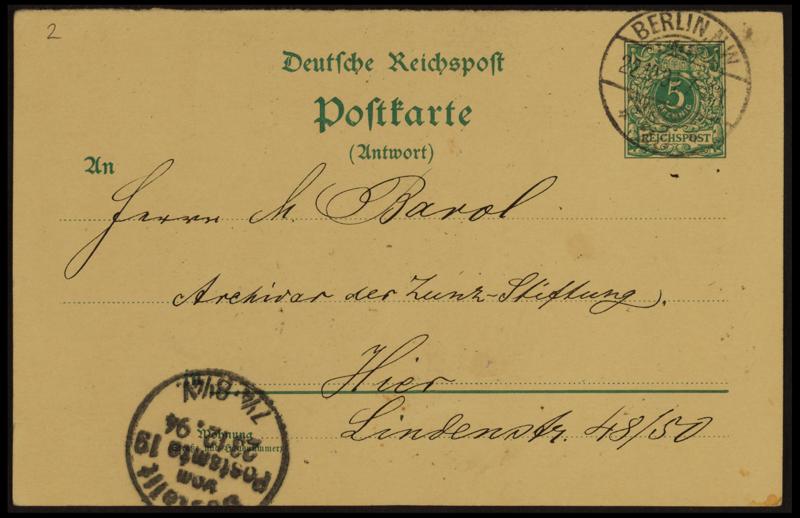 2
Deutsche Reichspost
Postkarte
(Antwort)
BERLIN N.W
5
REICHSPOST
An
Herrn M. Barol
Archivar der Zunz-Stiftung.
Hier
Lindenstr. 48/50
Wohnung
Bestellt
vom
Postamte 19
22.2.94
7¼-8¼N